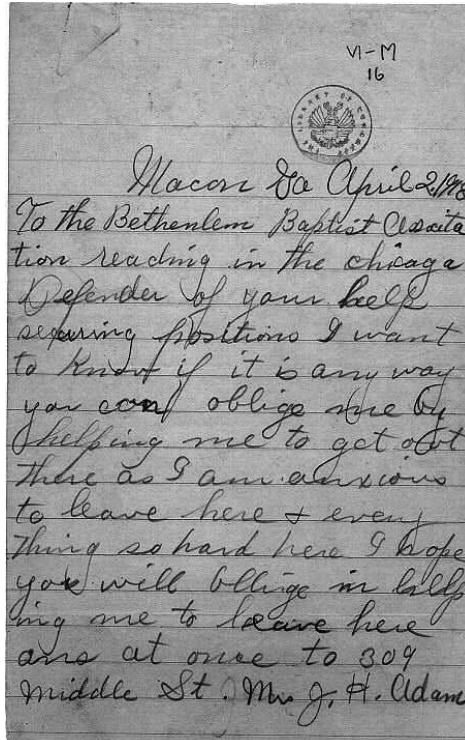 VI-M
16
THE LIBRARY OF CONGRESS
Macon Ga April 2, 1918
To the Bethenlem Baptist Assoita
tion reading in the chicaga
Defender of your help
securing positions I want
to Know if it is any way
you can oblige me by
helping me to get out
there as I am anxious
to leave here & every
thing so hard here I hope
you will oblige in help
ing me to leave here
ans at once to 309
Middle St. Mrs J. H. Adam